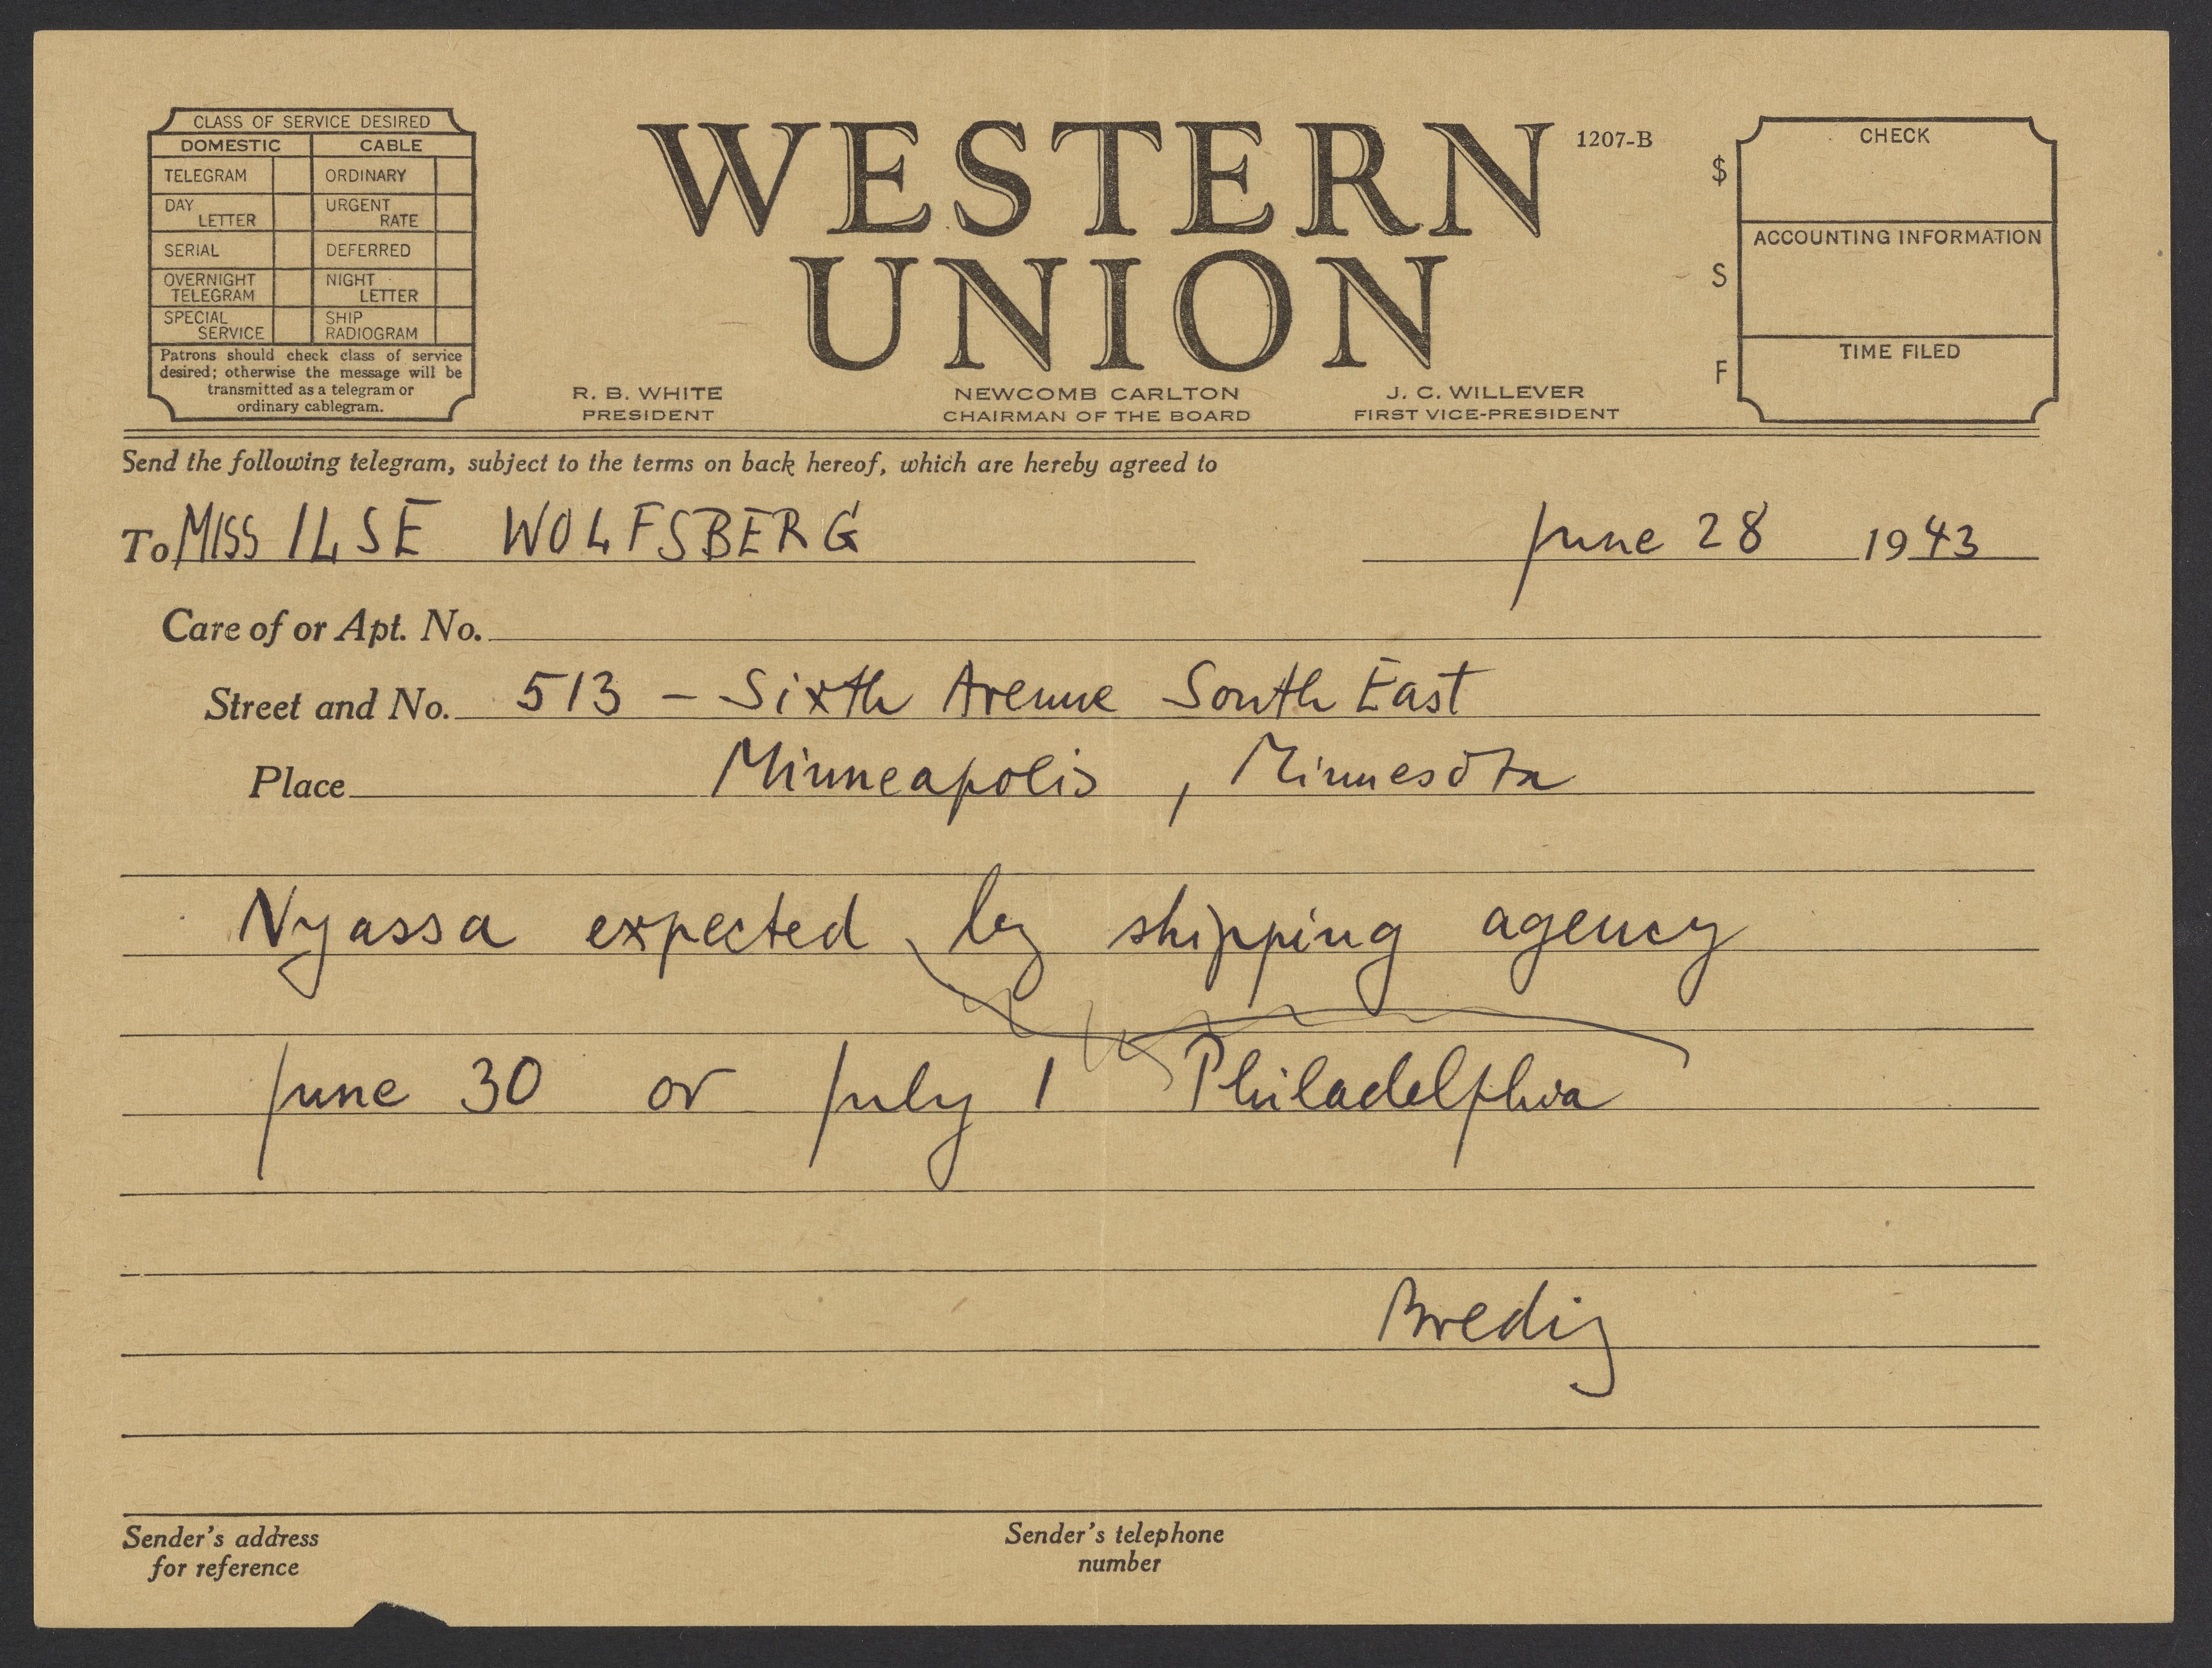 CLASS OF SERVICE DESIRED
DOMESTIC CABLE
TELEGRAM ORDINARY
DAY LETTER URGENT RATE
SERIAL DEFERRED
OVERNIGHT TELEGRAM NIGHT LETTER
SPECIAL SERVICE SHIP RADIOGRAM
Patrons should check class of service
desired; otherwise the message will be
transmitted as a telegram or
ordinary cablegram.
WESTERN
UNION
1207-B
R. B. WHITE
PRESIDENT
NEWCOMB CARLTON
CHAIRMAN OF THE BOARD
J. C. WILLEVER
FIRST VICE-PRESIDENT
$
S
F
CHECK
ACCOUNTING INFORMATION
TIME FILED
Send the following telegram, subject to the terms on back hereof, which are hereby agreed to
To MISS ILSE WOLFSBERG June 28 1943
Care of or Apt. No.
Street and No. 513 - Sixth Avenue South East
Place Minneapolis, Minnesota
Nyassa expected by shipping agency
June 30 or July 1 Philadelphia
Bredig
Sender's address
for reference
Sender's telephone
number